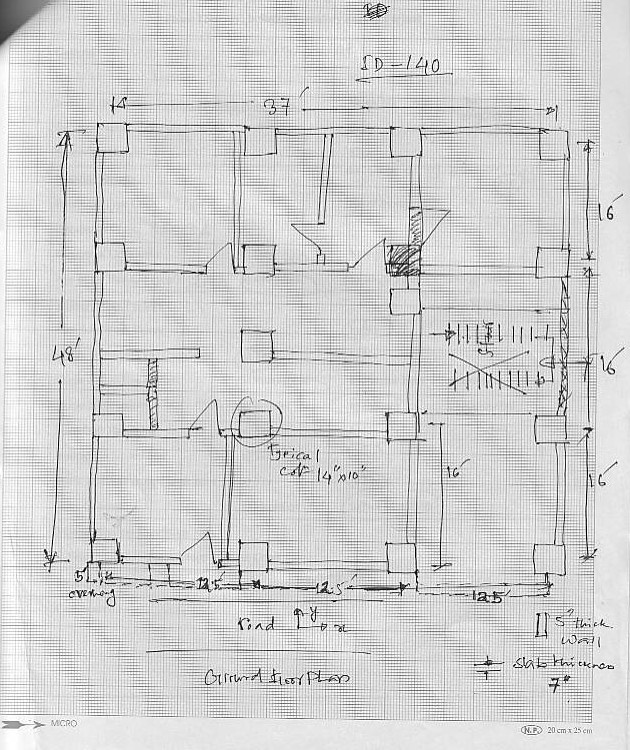 ID-140
37'
16'
48'
16'
Typical
col- 14"x10"
16'
16'
5'
overhang
12.5'
12.5'
12.5'
Road
y
x
5" thick
wall
slab thickness
7"
Ground floor Plan
MICRO
N.P. 20 cm x 25 cm